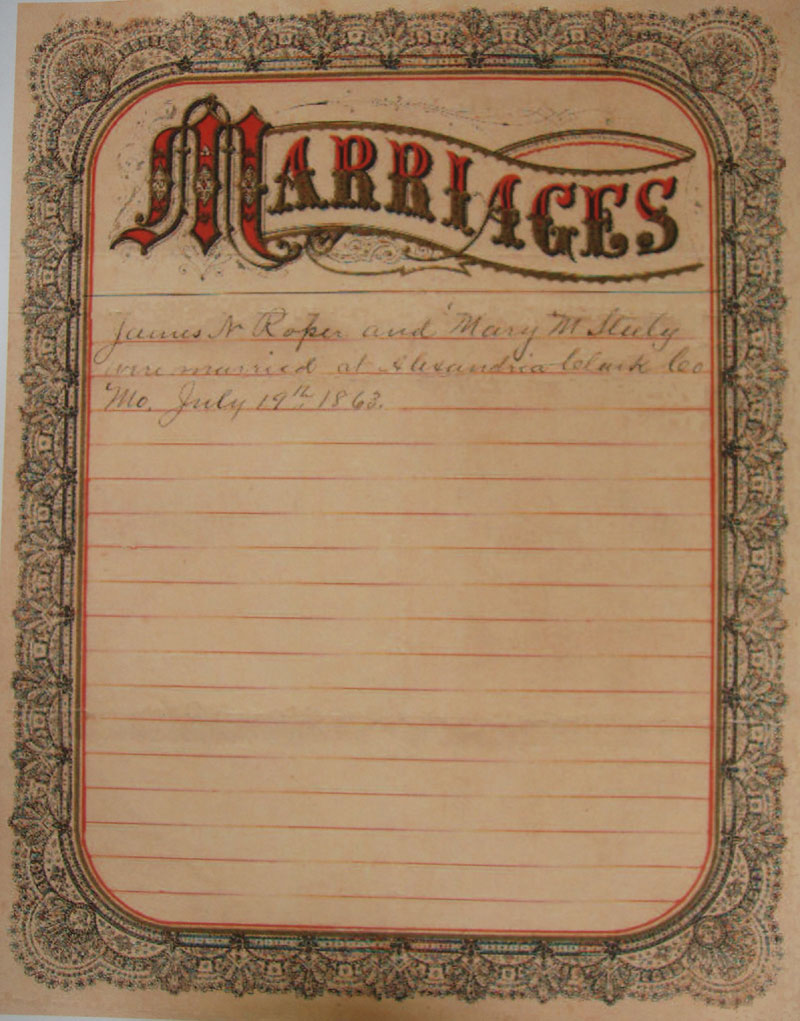 MARRIAGES
James N Roper and Mary M Steely
were married at Alexandria Clark Co
Mo. July 19th 1863.